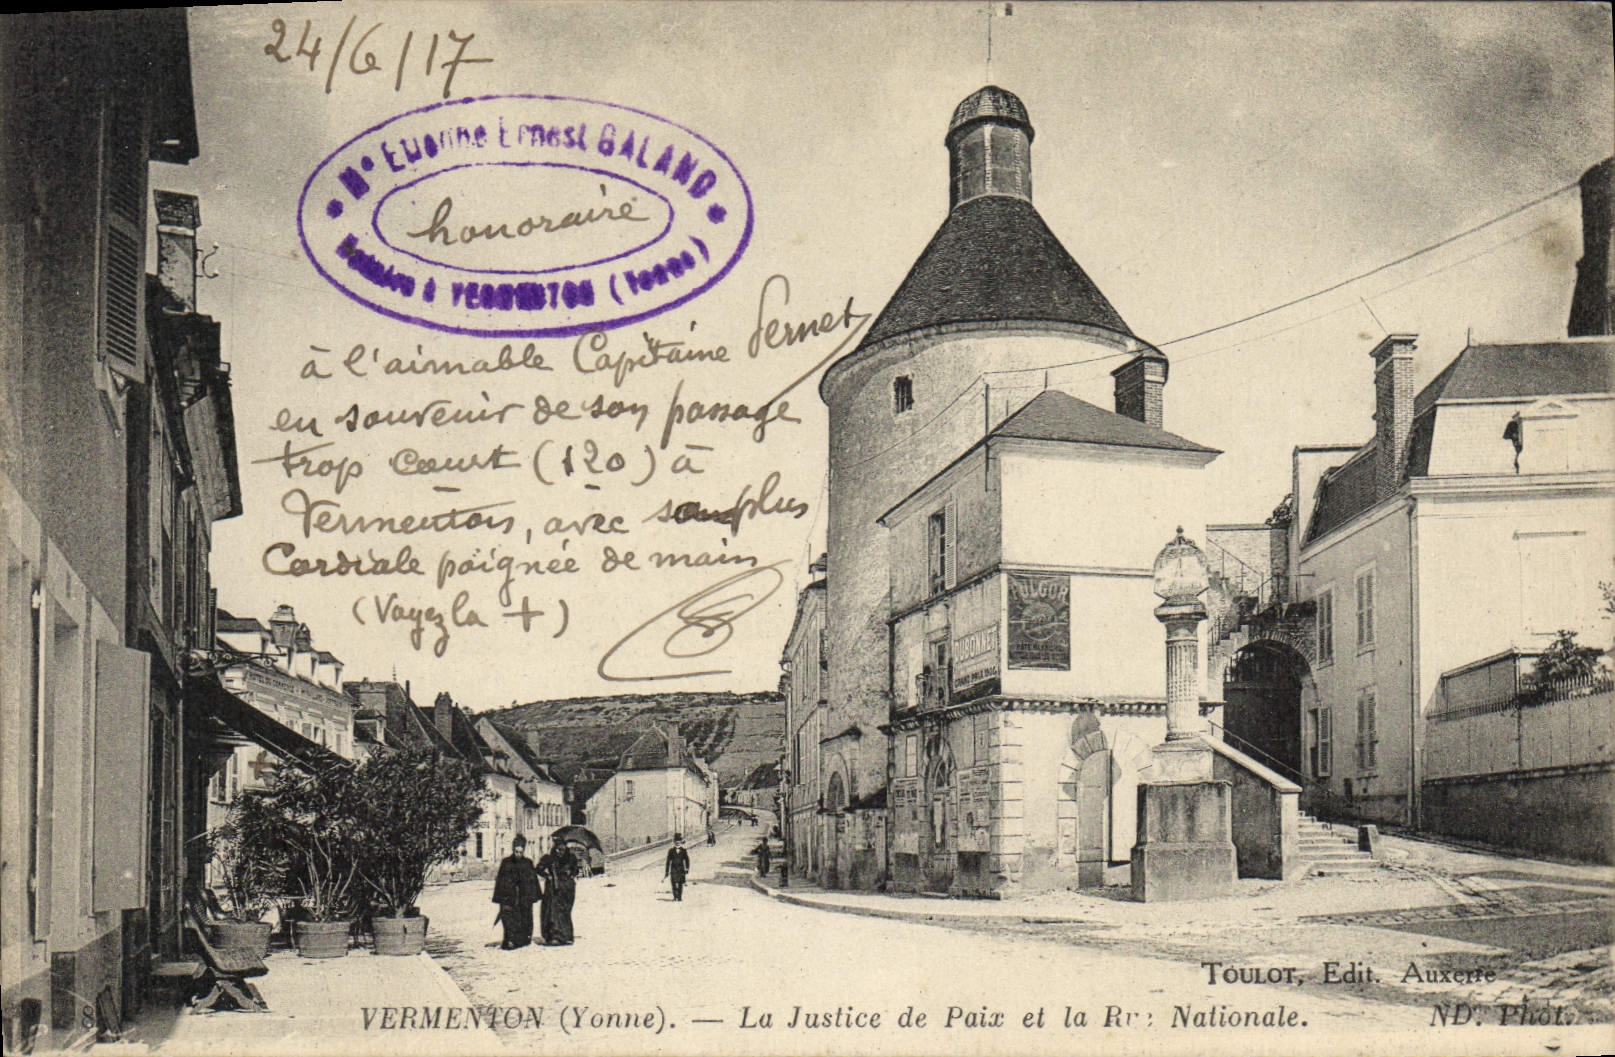 24/6/17
Me Etienne Ernest GALAND
honoraire
Notaire à VERMENTON (Yonne)
à l'aimable Capitaine Vernet
en souvenir de son passage
trop court (120) à
Vermenton, avec plus
Cordiale poignée de main
(Voyez la +)
FULGOR
DUBONNET
8
TOULOT, Edit. Auxerre
VERMENTON (Yonne). — La Justice de Paix et la Rue Nationale.
ND. Phot.